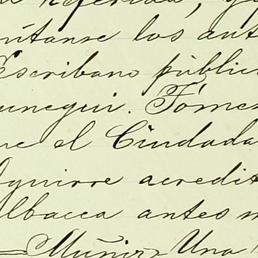 a Referida, y
mítanse los aut
Escribano públic
unegui. Tómes
ue el Ciudada
Aguirre acredit
albacea antes
Muñiz, Una